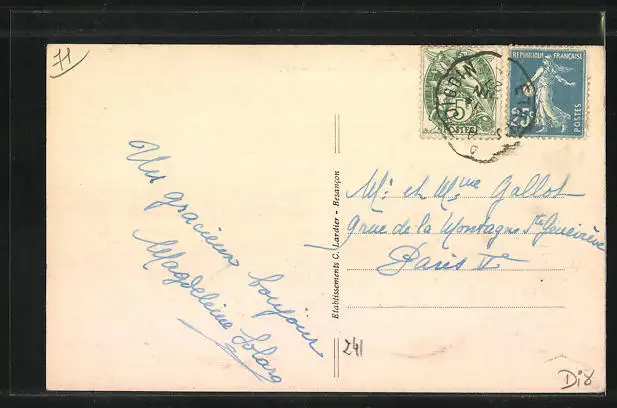 71
RÉPUBLIQUE FRANÇAISE
5
POSTES
25
POSTES
DIGOIN
Un gracieux bonjour
Magdeleine Solary
Etablissements C. Lardier - Besançon
Mr et Mme Gallot
9 rue de la Montagne Ste Geneviève
Paris Ve
24
Di8